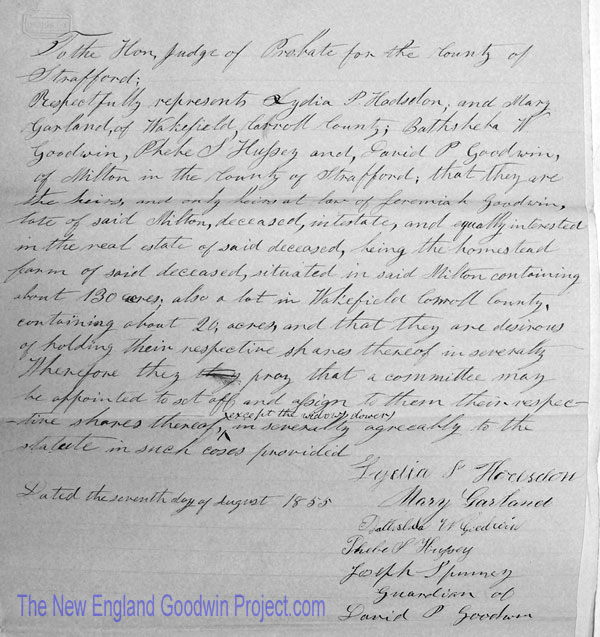 To the Hon, Judge of Probate for the County of
Strafford;
Respectfully represents Lydia P. Hodsdon, and Mary
Garland, of Wakefield, Carroll County; Bathsheba W
Goodwin, Phebe S Hussey and, David P Goodwin,
of Milton in the County of Strafford; that they are
the heirs, and only heirs at law of Jeremiah Goodwin,
late of said Milton, deceased, intestate, and equally interested
in the real estate of said deceased, being the homestead
farm of said deceased, situated in said Milton containing
about 130 acres, also a lot in Wakefield Carroll County,
containing about 20, acres, and that they are desirous
of holding their respective shares thereof in severalty
Wherefore they they pray that a committee may
be appointed to set off, and assign to them their respec-
(except the widows dower)
-tive shares thereof, in severalty agreeably to the
statute in such cases provided
Lydia S Hodsdon
Dated the seventh day of August 1855
Mary Garland
Bathsheba W Goodwin
Phebe S Hussey
Joseph Spinney
Guardian of
David P Goodwin
The New England Goodwin Project.com